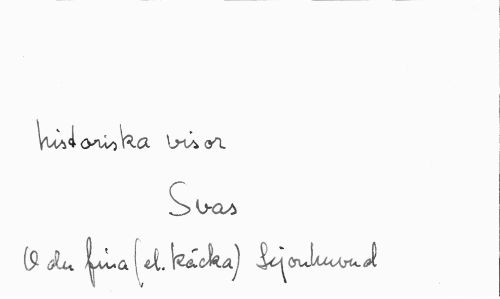 historiska visor
Svas
O du fina (el. käcka) Lejonhuvud